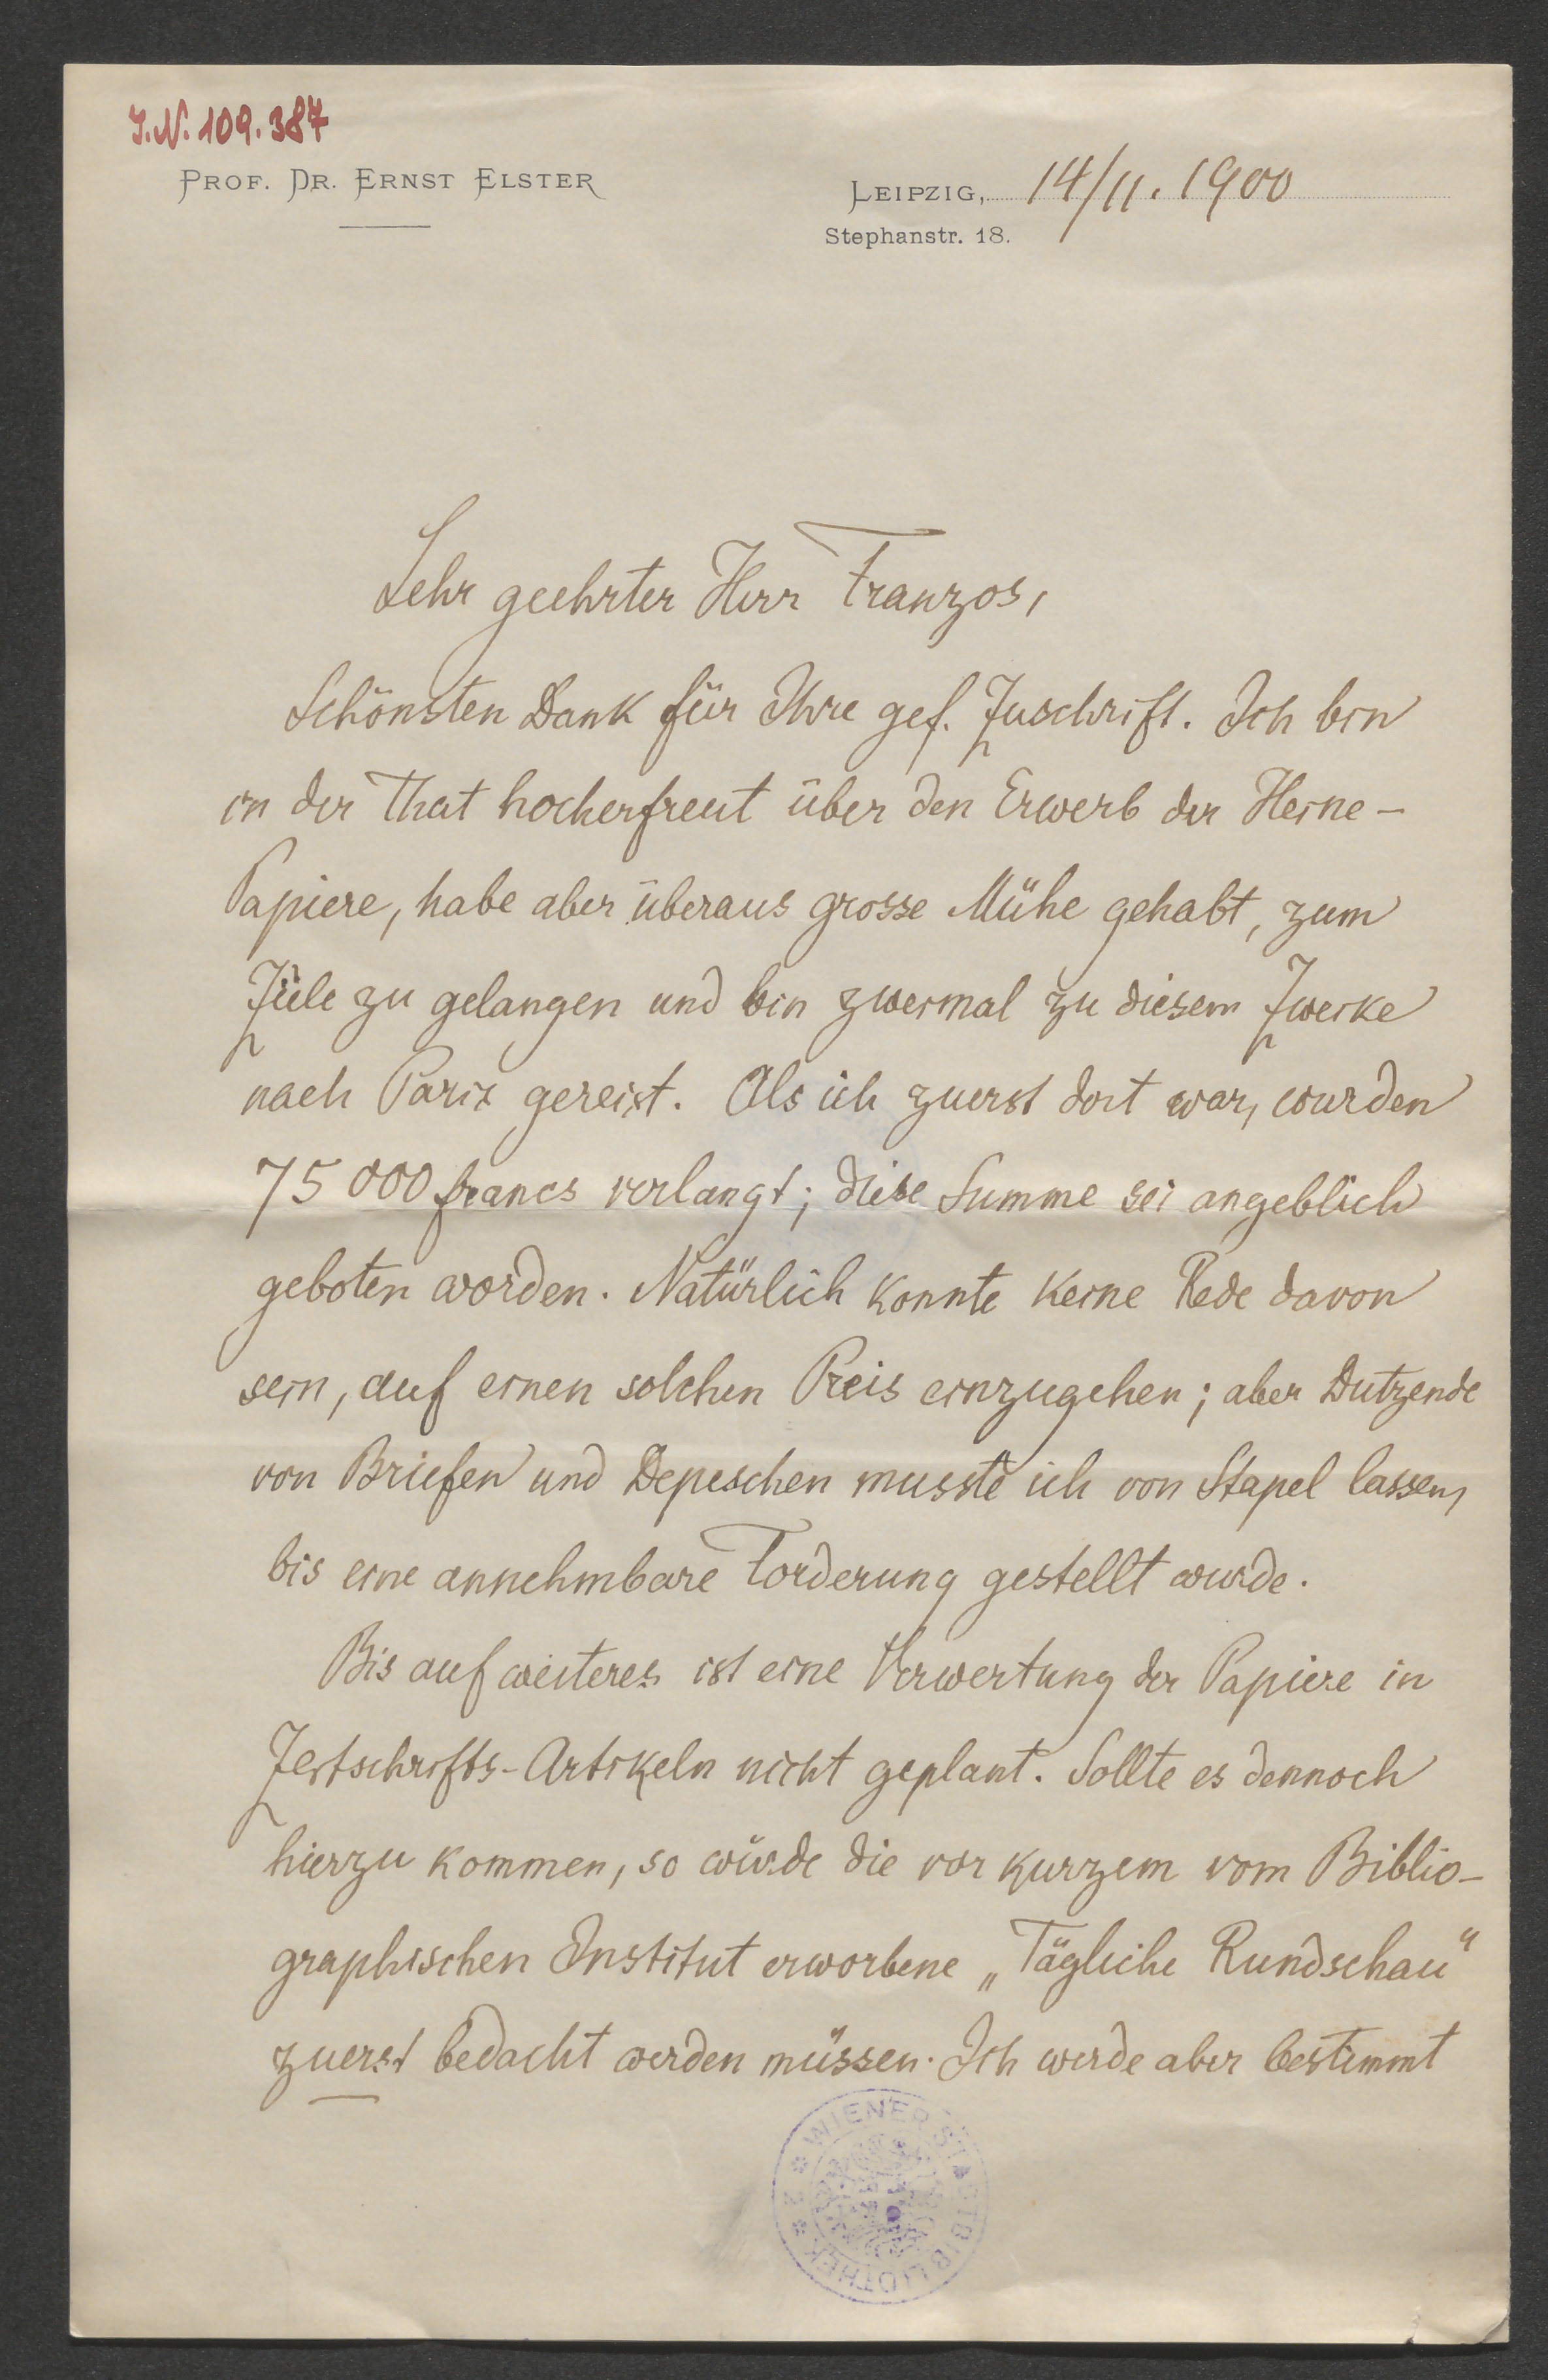 I.N. 109.387
PROF. DR. ERNST ELSTER
LEIPZIG, 14/11. 1900
Stephanstr. 18.
Sehr geehrter Herr Franzos,
Schönsten Dank für Ihre gef. Zuschrift. Ich bin
in der That hocherfreut über den Erwerb der Heine-
Papiere, habe aber überaus grosse Mühe gehabt, zum
Ziele zu gelangen und bin zweimal zu diesem Zwecke
nach Paris gereist. Als ich zuerst dort war, wurden
75 000 francs verlangt; diese Summe sei angeblich
geboten worden. Natürlich konnte keine Rede davon
sein, auf einen solchen Preis einzugehen; aber Dutzende
von Briefen und Depeschen musste ich von Stapel lassen,
bis eine annehmbare Forderung gestellt wurde.
Bis auf weiteres ist eine Verwertung der Papiere in
Zeitschrifts-Artikeln nicht geplant. Sollte es dennoch
hierzu kommen, so würde die vor kurzem vom Biblio-
graphischen Institut erworbene „Tägliche Rundschau“
zuerst bedacht werden müssen. Ich werde aber bestimmt
WIENER STADTBIBLIOTHEK